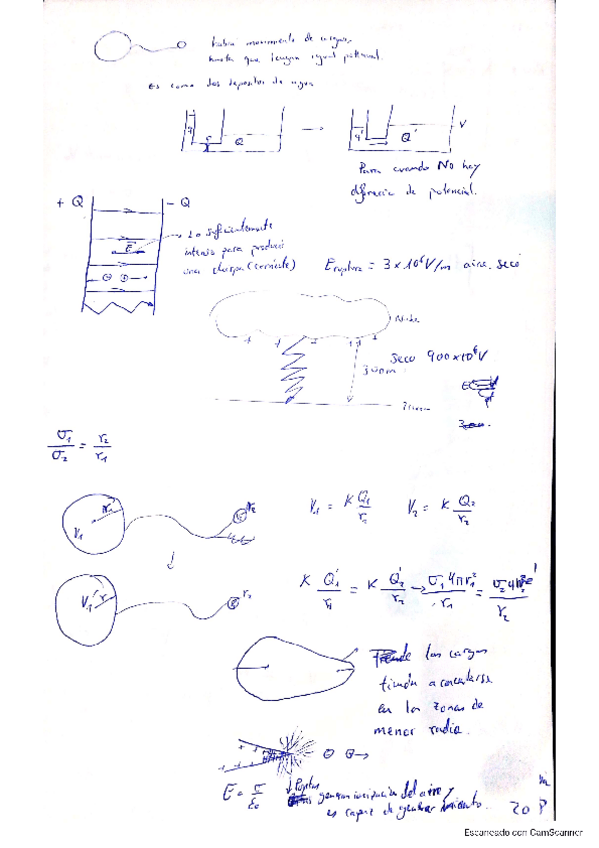 habrá movimiento de cargas,
hasta que tengan igual potencial.
es como dos depositos de agua
q Q → q' Q' V
Para cuando No hay
diferencia de potencial.
+ Q - Q
E → Lo suficientemente
intenso para producir
una chispa (corriente)
E ruptura = 3 x 10⁶ V/m aire seco
Nube
+ + + +
300m
Seco 900x10⁶V
σ₁/σ₂ = r₂/r₁
V₁ r₁ r₂
V₁ = K Q₁/r₁ V₂ = K Q₂/r₂
V₁' r₁ r₂
K Q₁'/r₁ = K Q₂'/r₂ → σ₁4πr₁²/r₁ = σ₂4πr₂²/r₂
las cargas
en las zonas de
menor radio.
+ + + + ⊖ ⊖→
E = σ/ε₀
↓ Ruptura
del aire y
es capaz de
20 P
Escaneado con CamScanner